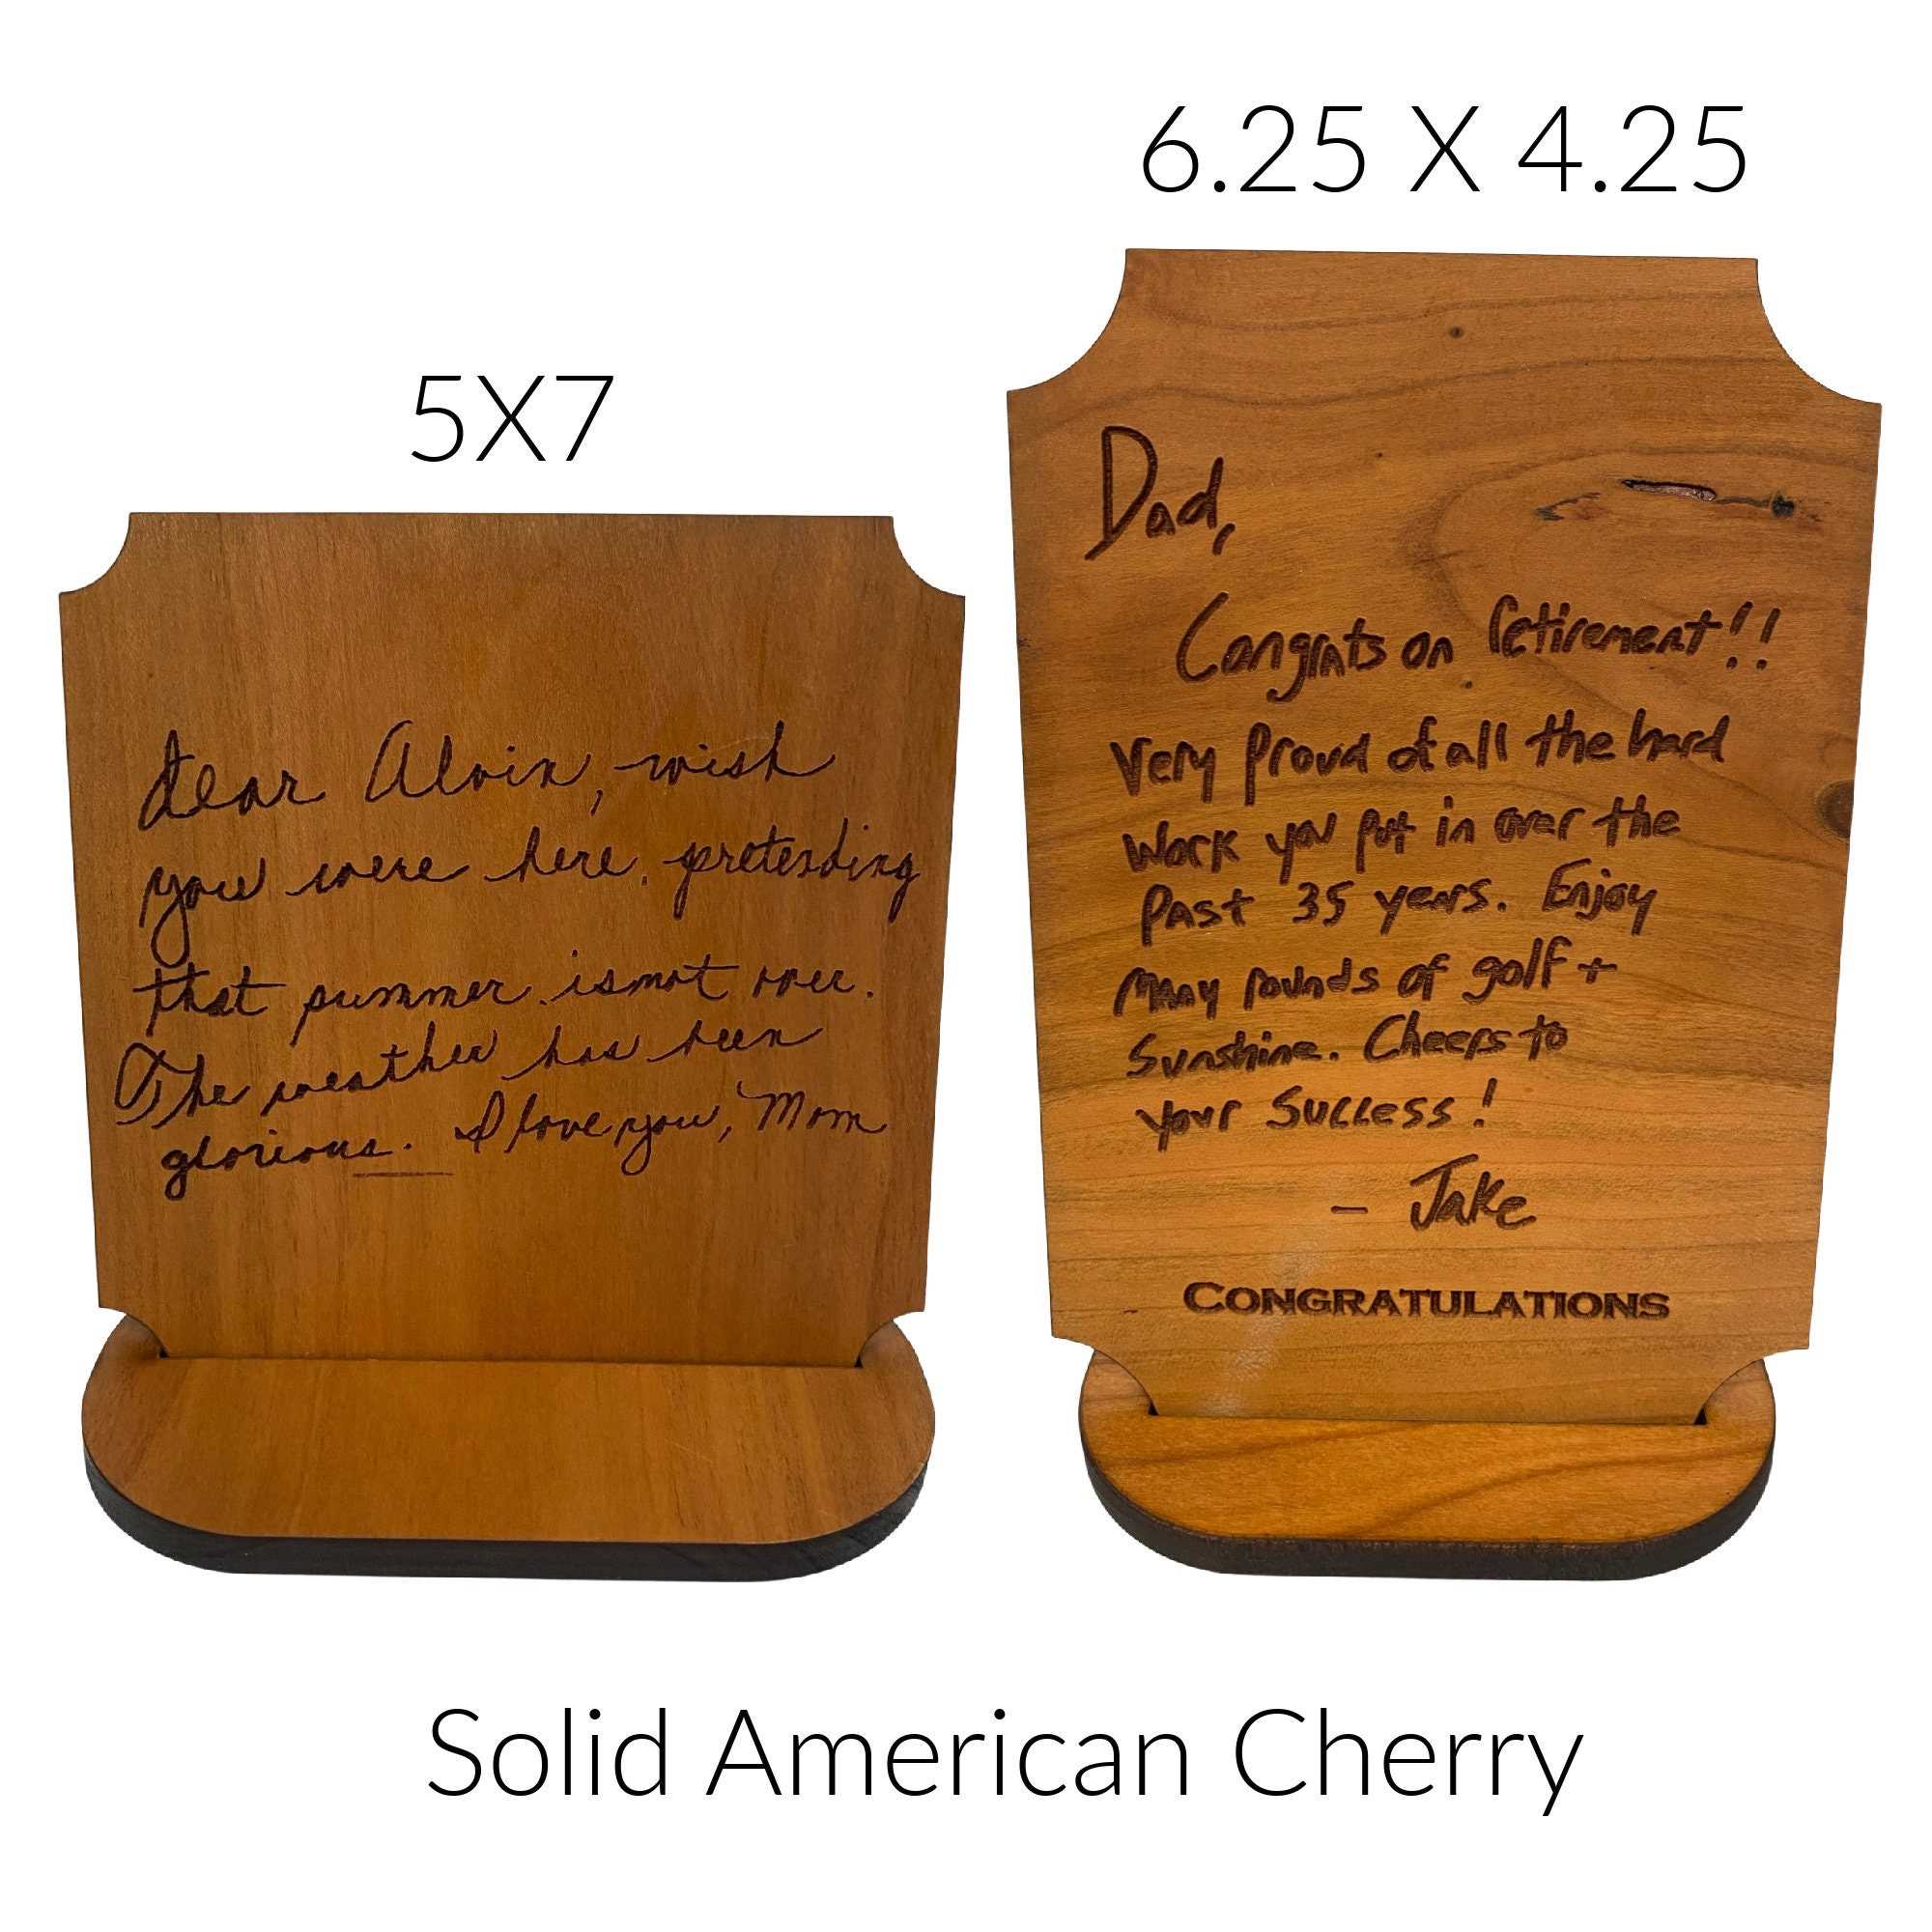 6.25 X 4.25
5X7
Dear Alvin, wish
you were here. pretending
that summer is not over.
The weather has been
glorious. I love you, Mom
Dad,
Congrats on retirement!!
Very Proud of all the hard
work you put in over the
Past 35 years. Enjoy
Many rounds of golf +
Sunshine. Cheers to
your Success!
- Jake
CONGRATULATIONS
Solid American Cherry